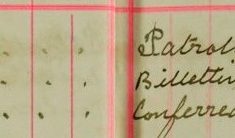 Patrol
Billettin
Conferred